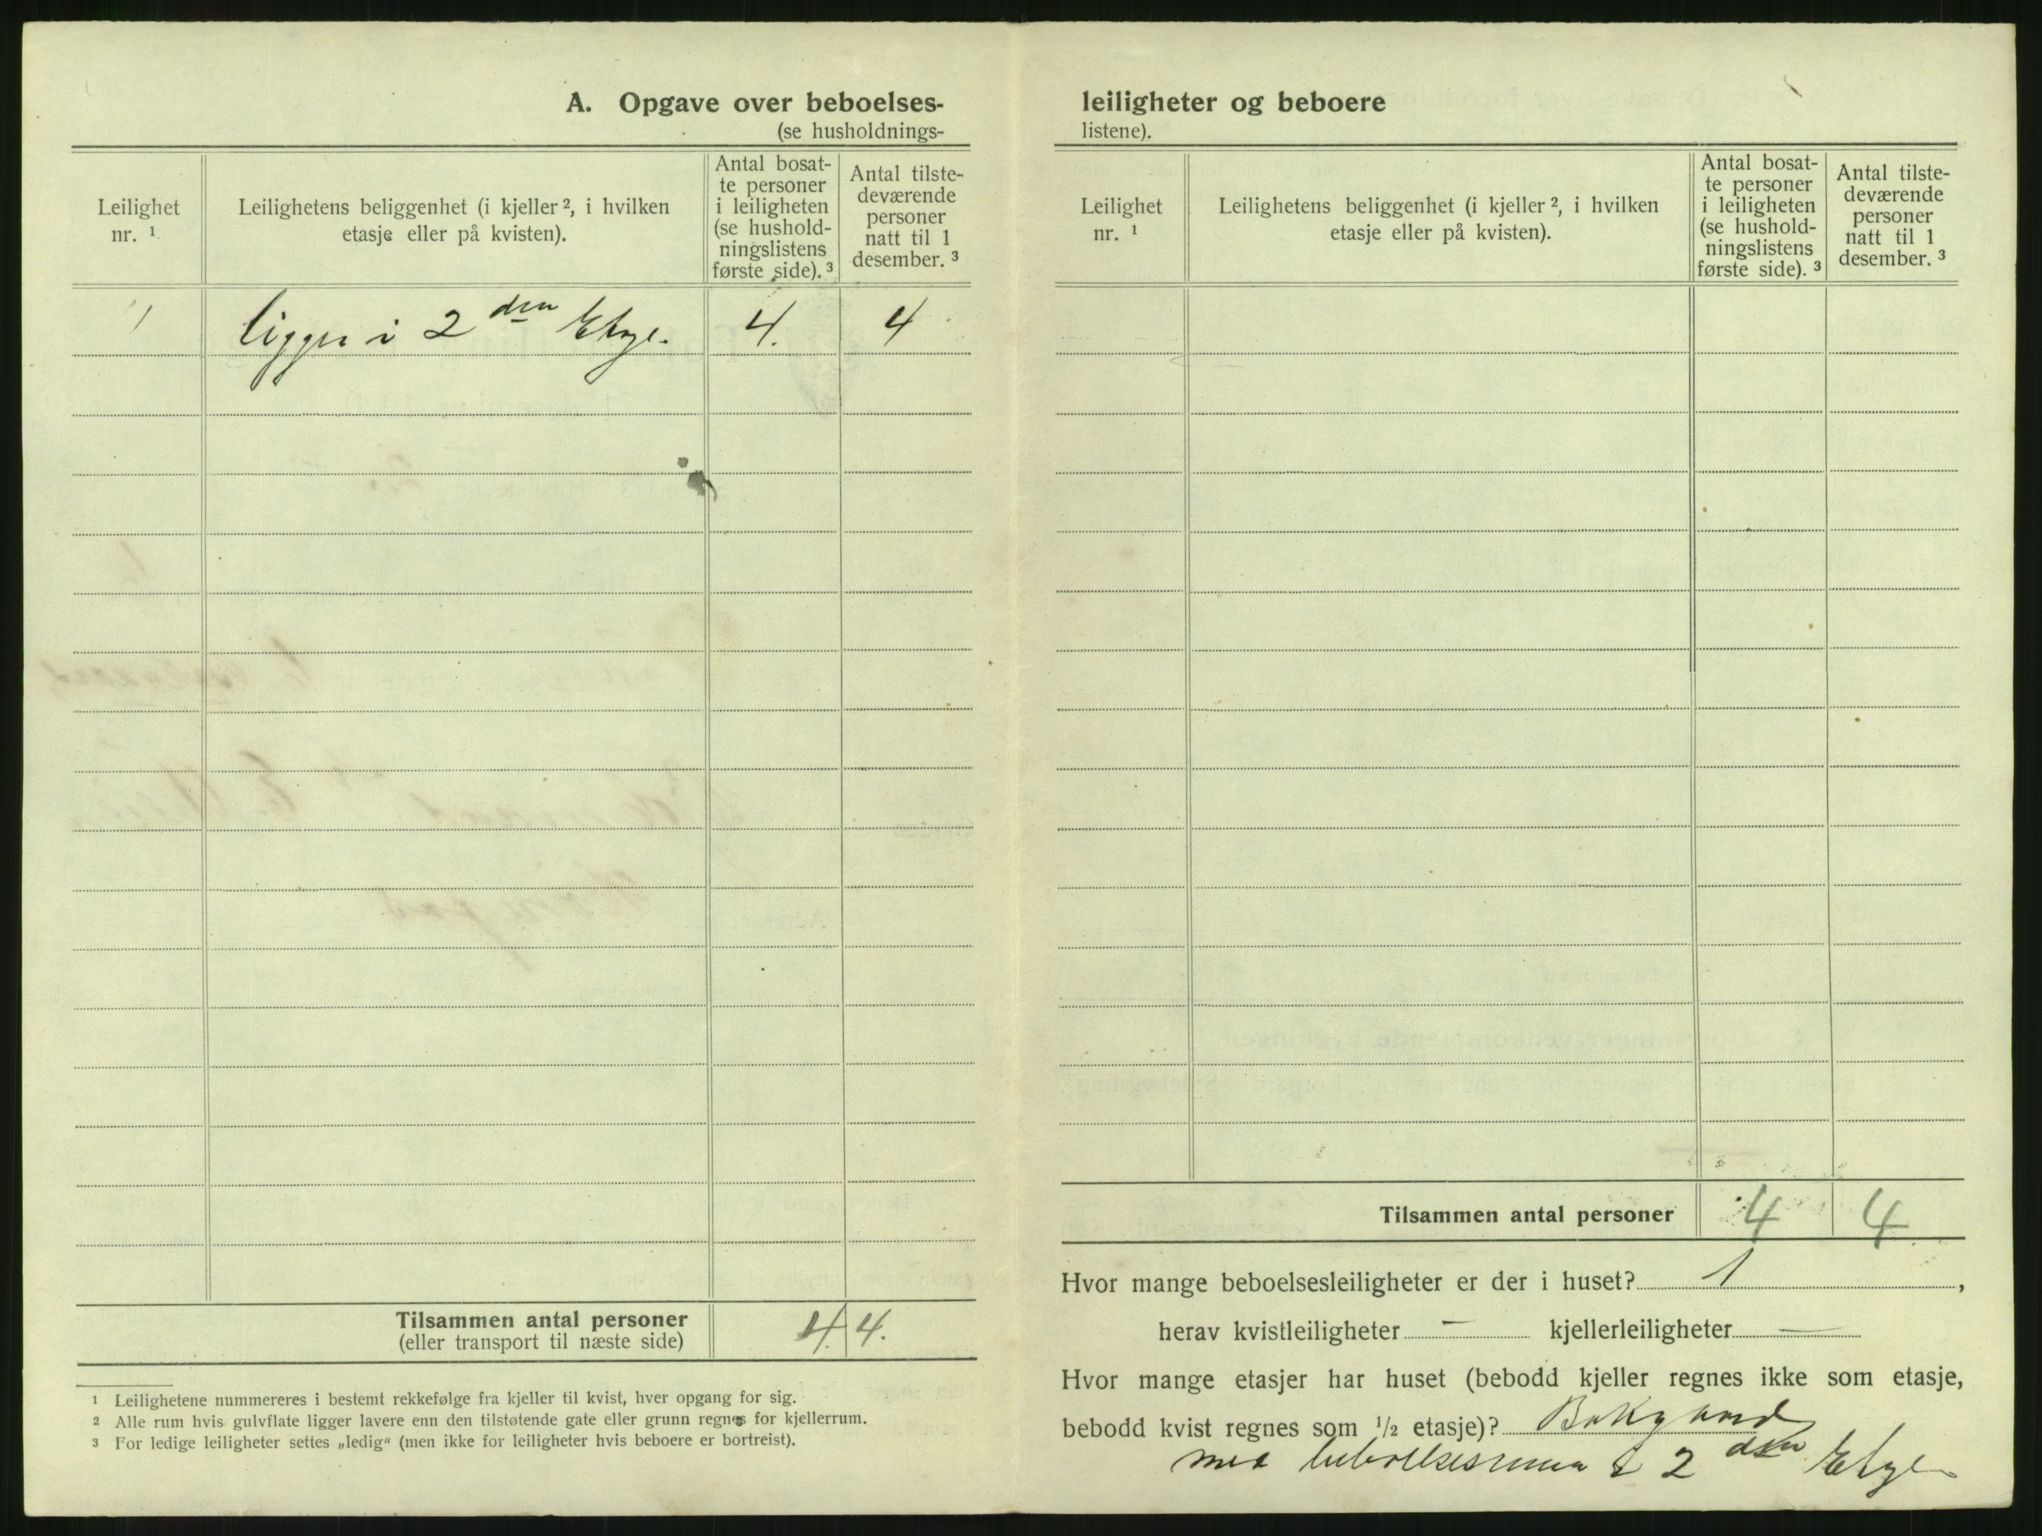 A. Opgave over beboelses-
(se husholdnings-
Leilighet
nr. ¹
Leilighetens beliggenhet (i kjeller ², i hvilken
etasje eller på kvisten).
Antal bosat-
te personer
i leiligheten
(se hushold-
ningslistens
første side). ³
Antal tilste-
deværende
personer
natt til 1
desember. ³
1 ligger i 2 den Etage. 4. 4
Tilsammen antal personer 4. 4.
(eller transport til næste side)
¹ Leilighetene nummereres i bestemt rekkefølge fra kjeller til kvist, hver opgang for sig.
² Alle rum hvis gulvflate ligger lavere enn den tilstøtende gate eller grunn regnes for kjellerrum.
³ For ledige leiligheter settes „ledig“ (men ikke for leiligheter hvis beboere er bortreist).
leiligheter og beboere
listene).
Leilighet
nr. ¹
Leilighetens beliggenhet (i kjeller ², i hvilken
etasje eller på kvisten).
Antal bosat-
te personer
i leiligheten
(se hushold-
ningslistens
første side). ³
Antal tilste-
deværende
personer
natt til 1
desember. ³
Tilsammen antal personer 4 4
Hvor mange beboelsesleiligheter er der i huset? 1,
herav kvistleiligheter — kjellerleiligheter —
Hvor mange etasjer har huset (bebodd kjeller regnes ikke som etasje,
bebodd kvist regnes som ½ etasje)? Bakgaard
med 2 den Etage